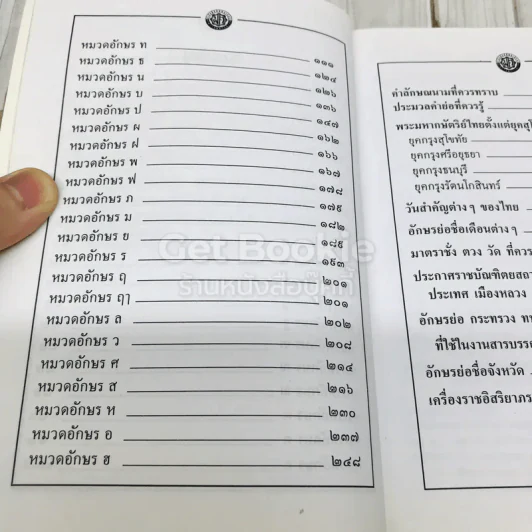 หมวดอักษร ท ๑๑๑
หมวดอักษร ธ ๑๒๔
หมวดอักษร น ๑๒๖
หมวดอักษร บ ๑๓๖
หมวดอักษร ป ๑๔๗
หมวดอักษร ผ ๑๖๒
หมวดอักษร ฝ ๑๖๖
หมวดอักษร พ ๑๖๗
หมวดอักษร ฟ ๑๗๘
หมวดอักษร ภ ๑๗๙
หมวดอักษร ม ๑๘๒
หมวดอักษร ย ๑๘๙
หมวดอักษร ร ๑๙๓
หมวดอักษร ฤ ๒๐๑
หมวดอักษร ฤๅ ๒๐๑
หมวดอักษร ล ๒๐๒
หมวดอักษร ว ๒๐๘
หมวดอักษร ศ ๒๑๔
หมวดอักษร ส ๒๑๖
หมวดอักษร ห ๒๓๐
หมวดอักษร อ ๒๓๗
หมวดอักษร ฮ ๒๔๘
คำลักษณนามที่ควรทราบ
ประมวลคำย่อที่ควรรู้
พระมหากษัตริย์ไทยตั้งแต่ยุคสุโ
ยุคกรุงสุโขทัย
ยุคกรุงศรีอยุธยา
ยุคกรุงธนบุรี
ยุคกรุงรัตนโกสินทร์
วันสำคัญต่าง ๆ ของไทย
อักษรย่อชื่อเดือนต่าง ๆ
มาตราชั่ง ตวง วัด ที่ควร
ประกาศราชบัณฑิตยสถา
ประเทศ เมืองหลวง
อักษรย่อ กระทรวง ทบ
ที่ใช้ในงานสารบรรณ
อักษรย่อชื่อจังหวัด
เครื่องราชอิสริยาภร
Get Bookie
ร้านหนังสือบุ๊คกี้